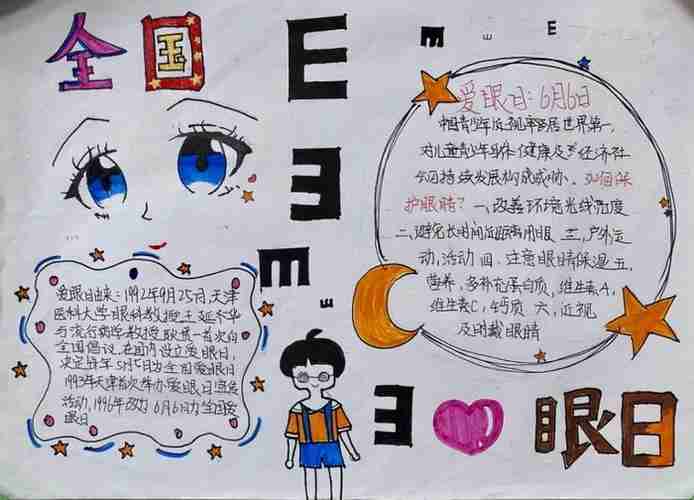 全国
E
E
E
E
E
E
E
E
E
爱眼日:6月6日
中国青少年近视率居世界第一,
对儿童青少年身体健康及经济社
会可持续发展构成威胁。如何保
护眼睛?一、改善环境光线亮度
二、避免长时间近距离用眼 三、户外运
动,活动 四、注意眼睛保湿 五、
营养,多补充蛋白质,维生素A,
维生素C,钙质 六、近视
及时戴眼睛
爱眼日由来:1992年9月25日,天津
医科大学眼科教授王延华
与流行病学教授耿贯一首次向
全国倡议,在国内设立爱眼日,
决定每年5月5日为全国爱眼日
1993年天津首次举办爱眼日宣传
活动,1996年改为6月6日为全国爱
眼日
眼日